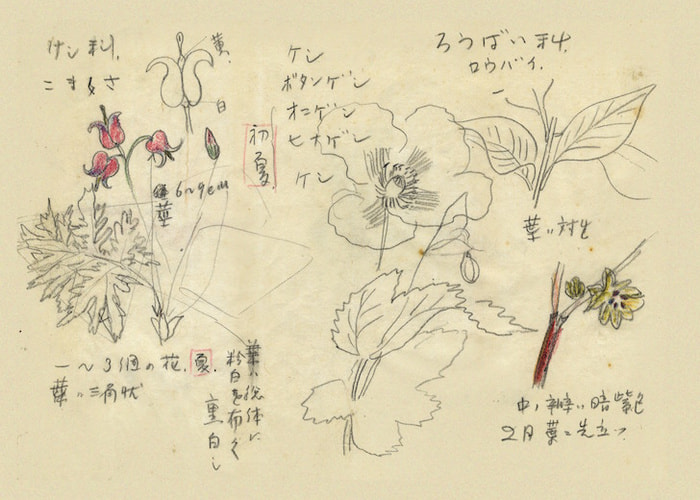 けし科.
こまくさ
黄.
白
茎 6〜9cm
一〜3個の花. 夏.
葉ハ三角状
葉ハ総体に
粉白を布く
裏白し
初夏
ケシ
ボタンゲシ
オニゲシ
ヒナゲシ
ケシ
ろうばい科.
ロウバイ.
葉ハ対生
中ノ瓣ハ暗紫色
2月葉ニ先立ツ